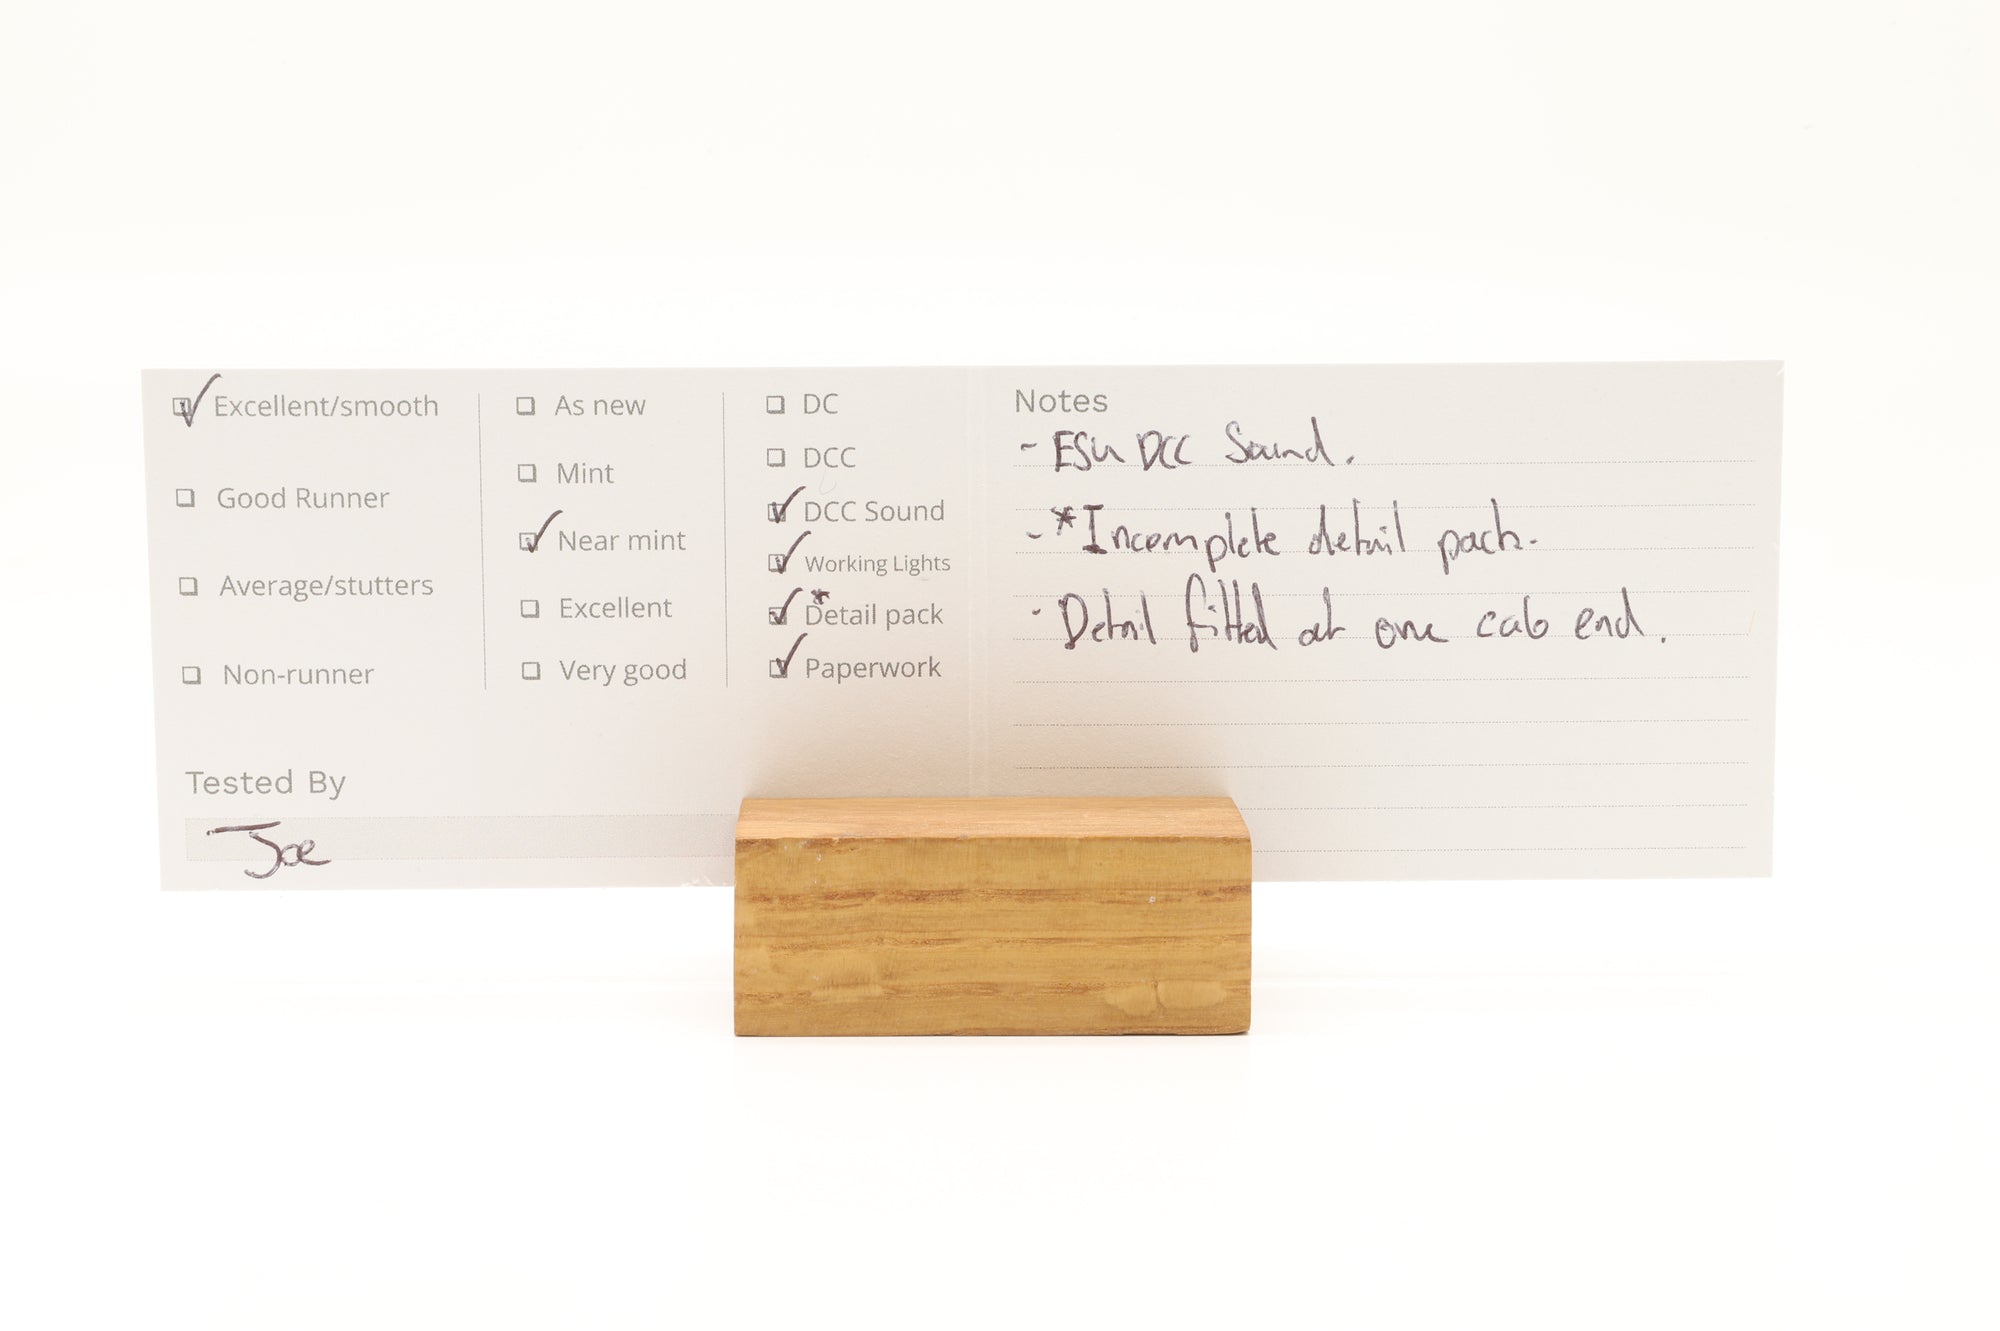 Excellent/smooth
Good Runner
Average/stutters
Non-runner
As new
Mint
Near mint
Excellent
Very good
DC
DCC
DCC Sound
Working Lights
*
Detail pack
Paperwork
Tested By
Joe
Notes
- ESU DCC Sound.
- *Incomplete detail pack.
- Detail fitted at one cab end.